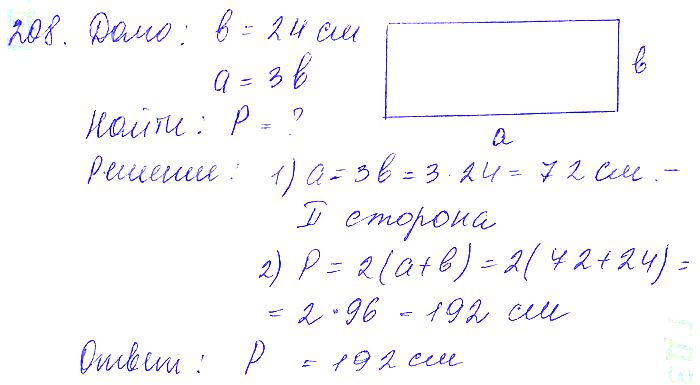 208. Дано: в = 24 см
a = 3в
в
Найти: P = ?
a
Решение: 1) a = 3в = 3·24 = 72 см. –
II сторона
2) P = 2(a+в) = 2(72+24) =
= 2·96 = 192 см
Ответ: P = 192 см
ГДЗ